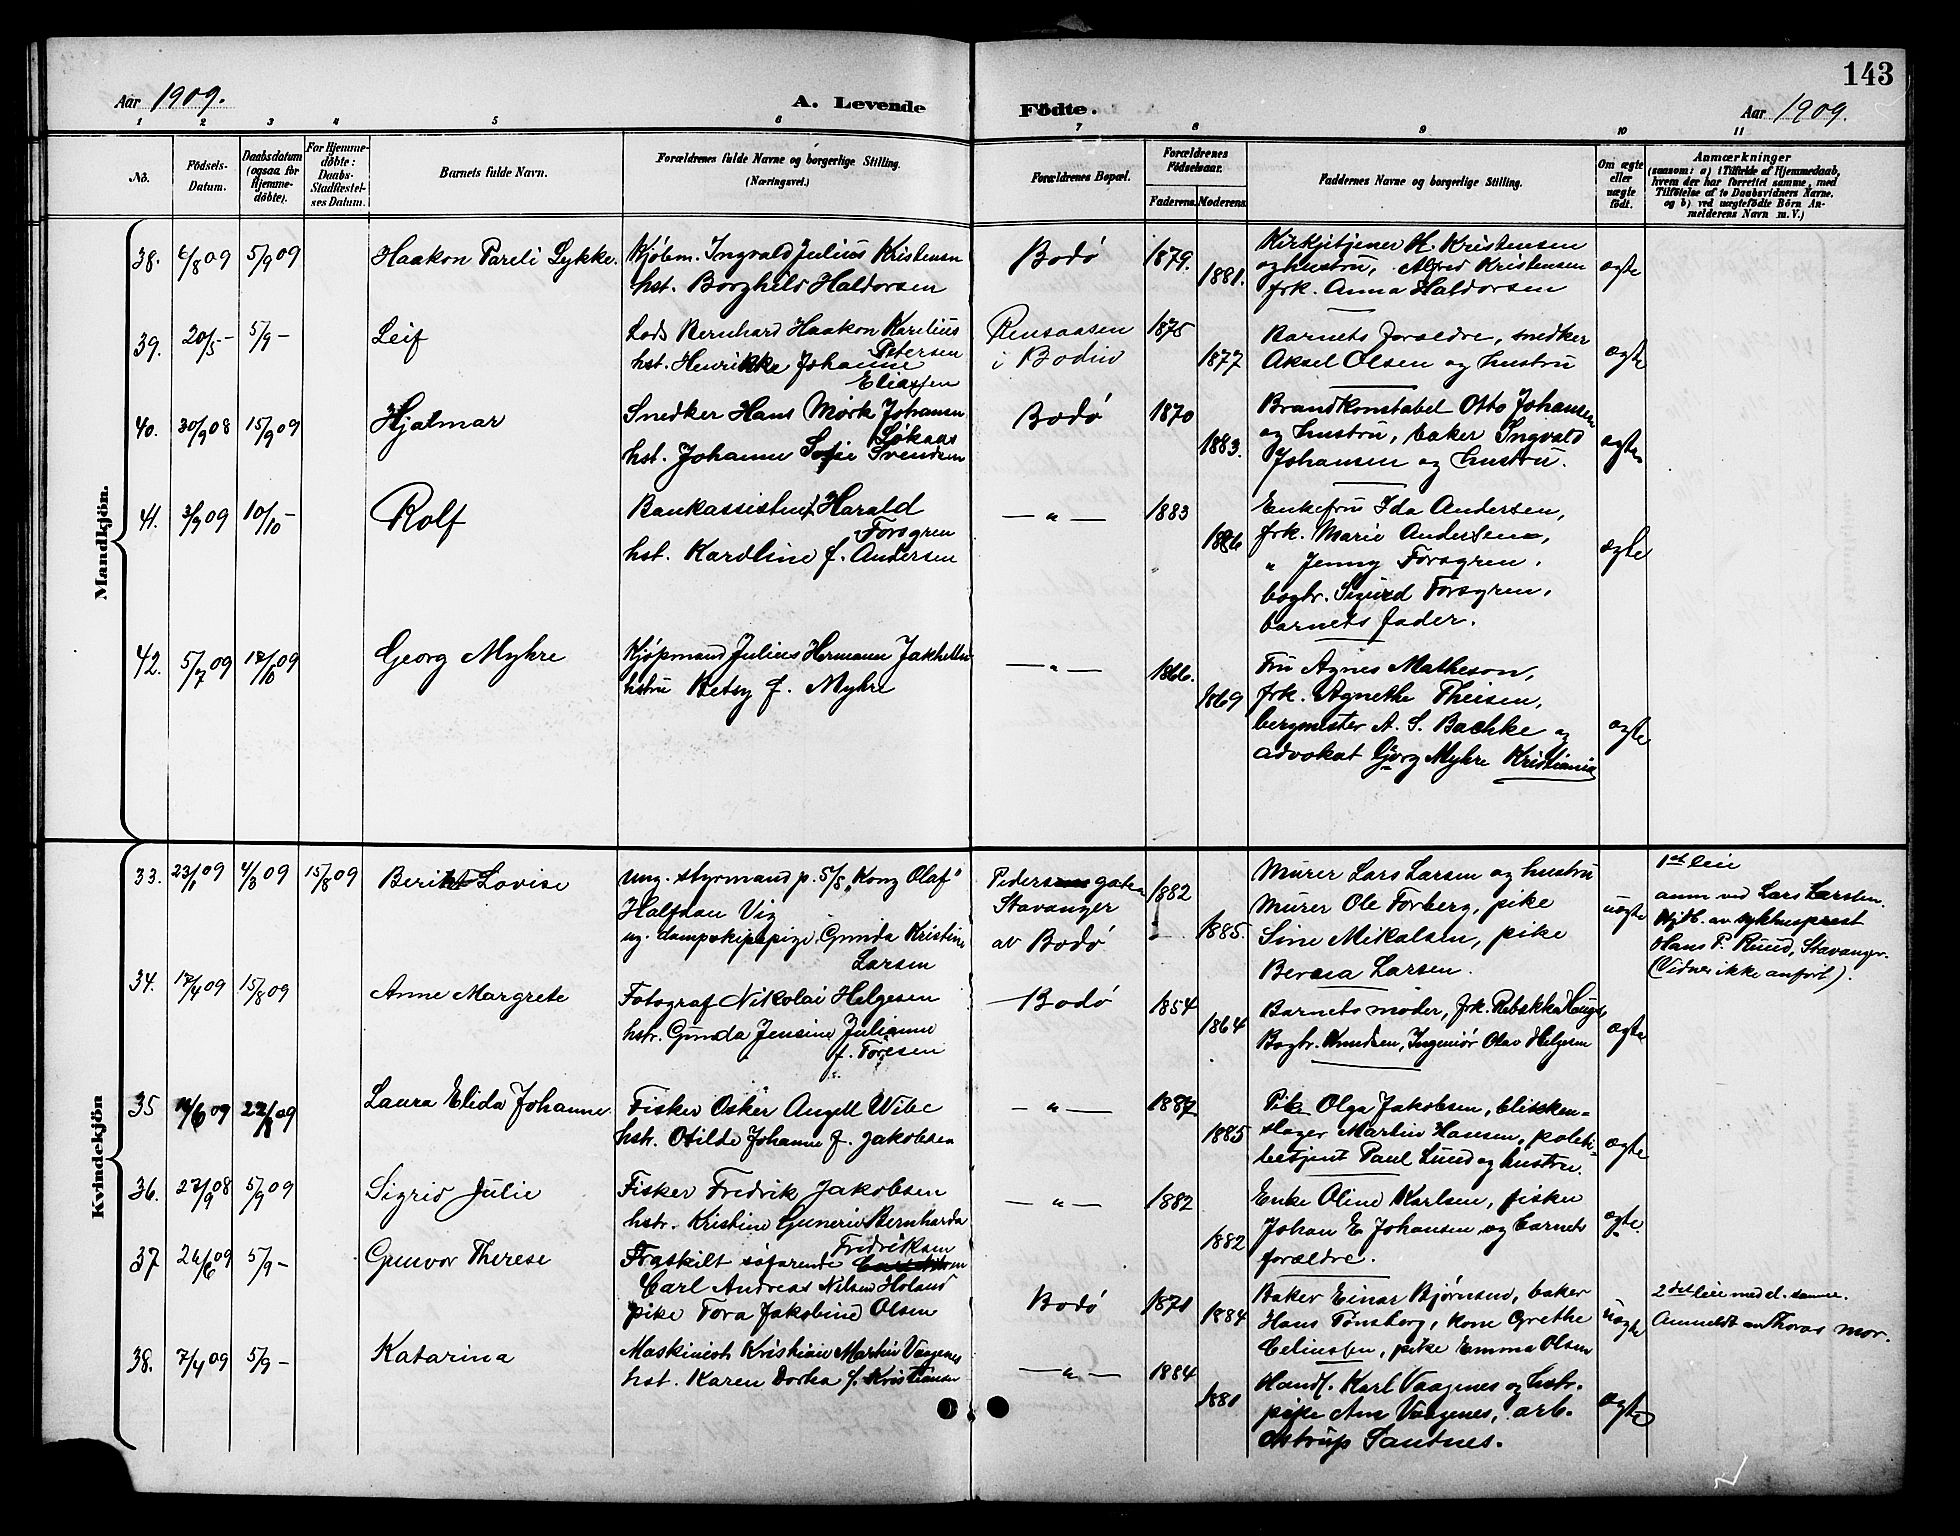 143
Aar 1909.
A. Levende
Födte.
Aar 1909.
1 2 3 4 5 6 7 8 9 10 11
No.
Födsels-
Datum.
Daabsdatum
(ogsaa for
Hjemme-
döbte).
For Hjemme-
döbte:
Daabs-
Stadfæstel-
ses Datum.
Barnets fulde Navn.
Forældrenes fulde Navne og borgerlige Stilling.
(Næringsvei.)
Forældrenes Bopæl.
Forældrenes
Födselsaar.
Faderens. Moderens.
Faddernes Navne og borgerlige Stilling.
Om ægte
eller
uægte
födt.
Anmærkninger
(saasom: a) i Tilfælde af Hjemmedaab,
hvem der har forrettet samme, med
Tilföielse af to Daabsvidners Navne.
og b) ved uægtefödte Börn An-
melderens Navn m. V.)
Mandkjön.
38. 6/8 09 5/9 09
Haakon Pareli Lykke.
Kjøbm. Ingvald Julius Kristensen
hst. Borghild Haldorsen
Bodö
1879.
1881.
Kirkjetjener H. Kristensen
og hustru, Alfred Kristensen
frk. Anna Haldorsen
ægte
39. 20/5 - 5/9 -
Leif
Lods Bernhard Haakon Karelius
Petersen
hst. Henrikke Johanne
Eliassen
Rensaasen
i Bodin
1875
1877
Barnets foreldre, snedker
Aksel Olsen og hustru
ægte
40. 30/9 08 15/9 09
Hjalmar
Snedker Hans Mørk Johansen
Løkaas
hst. Johanne Sofie Svendsen
Bodö
1870
1883.
Brandkonstabel Otto Johansen
og hustru, baker Ingvald
Johansen og hustru.
ægte
41. 3/9 09 10/10 -
Rolf
Bankassistent Harald
Forsgren
hst. Karoline f. Andersen
— " —
1883
1886
Enkefru Ida Andersen,
frk. Marie Andersen,
" Jenny Forsgren,
bogtr. Sigurd Forsgren,
barnets fader.
ægte
42. 5/7 09 12/10 09
Georg Myhre
Kjøpmand Julius Hermann Jakhelln
hstru Betsy f. Myhre
— " —
1866.
1869
Fru Agnes Matheson,
frk. Agnethe Theisen,
bergmester A. S. Bachke og
advokat Georg Myhre Kristiania
ægte
Kvindekjön
33. 23/1 09 4/3 09 15/8 09
Berit Lovise
ung. styrmand p. S/S "Kong Olaf"
Halfdan Vig
ug. dampskipspige Gunda Kristine
Larsen
Pedersgaten
Stavanger
av Bodö
1882
1885.
Murer Lars Larsen og hustru
Murer Ole Forberg, pike
Sine Mikalsen, pike
Berea Larsen.
uægte
1ste leie
anm ved Lars Larsen.
Hjd. av sykehusprest
Hans P. Ruud, Stavanger.
(Vidner ikke anført).
34. 17/4 09 15/8 09
Anne Margrete
Fotograf Nikolai Helgesen
hstr. Gunda Jensine Julianne
f. Toresen
Bodö
1854
1864
Barnets moder, frk. Rebekka Hauge,
Bogtr. Knudsen, Ingeniør Olav Helgesen
ægte
35 14/6 09 22/8 09
Laura Elida Johanne
Fisker Osker Angell Wibe
hstr. Otilde Johanne f. Jakobsen
— " —
1887
1885
Pike Olga Jakobsen, blikken-
slager Martin Hansen, politi-
betjent Paul Lund og hustru.
ægte
36. 27/9 08 5/9 09
Sigrid Julie
Fisker Fredrik Jakobsen
hstr. Kristine Gunerie Bernharda
Fredriksen
— " —
1882
1882
Enke Oline Karlsen, fisker
Johan E. Johansen og barnets
forældre.
ægte
37 26/6 09 5/9 -
Gunvor Therese
Fraskilt søfarende
Carl Andreas Nilsen Holand
pike Tora Jakobine Olsen
Bodö
1871
1884
Baker Einar Bjørnsen, baker
Hans Tønsberg, kone Grethe
Celiussen, pike Emma Olsen
uægte
2det leie med d. samme.
Anmeldt av Thoras mor.
38. 7/4 09 5/9 -
Katarina
Maskinist Kristian Martin Vaagenes
hst. Karen Dorthea f. Kristiansen
— " —
1884
1881
Handl. Karl Vaagenes og hstr.
pike Ane Vaagenes, arb.
Astrup Santnes.
ægte